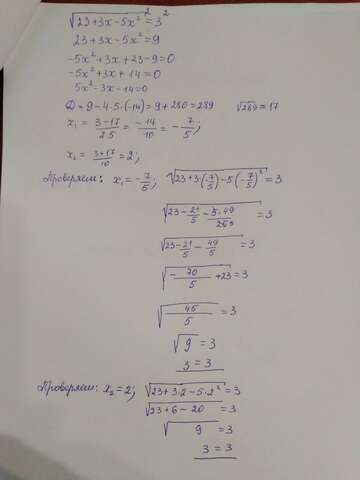 √(23+3x-5x²)² = 3²
23+3x-5x²=9
-5x²+3x+23-9=0
-5x²+3x+14=0
5x²-3x-14=0
D=9-4·5·(-14)=9+280=289 √289=17
x₁ = (3-17)/(2·5) = -14/10 = -7/5;
x₂ = (3+17)/10 = 2;
Проверяем: x₁=-7/5; √(23+3·(-7/5)-5(-7/5)²)=3
√(23-21/5-5·49/25)=3
√(23-21/5-49/5)=3
√(-70/5+23)=3
√(45/5)=3
√9=3
3=3
Проверяем: x₂=2; √(23+3·2-5·2²)=3
√(23+6-20)=3
√9=3
3=3